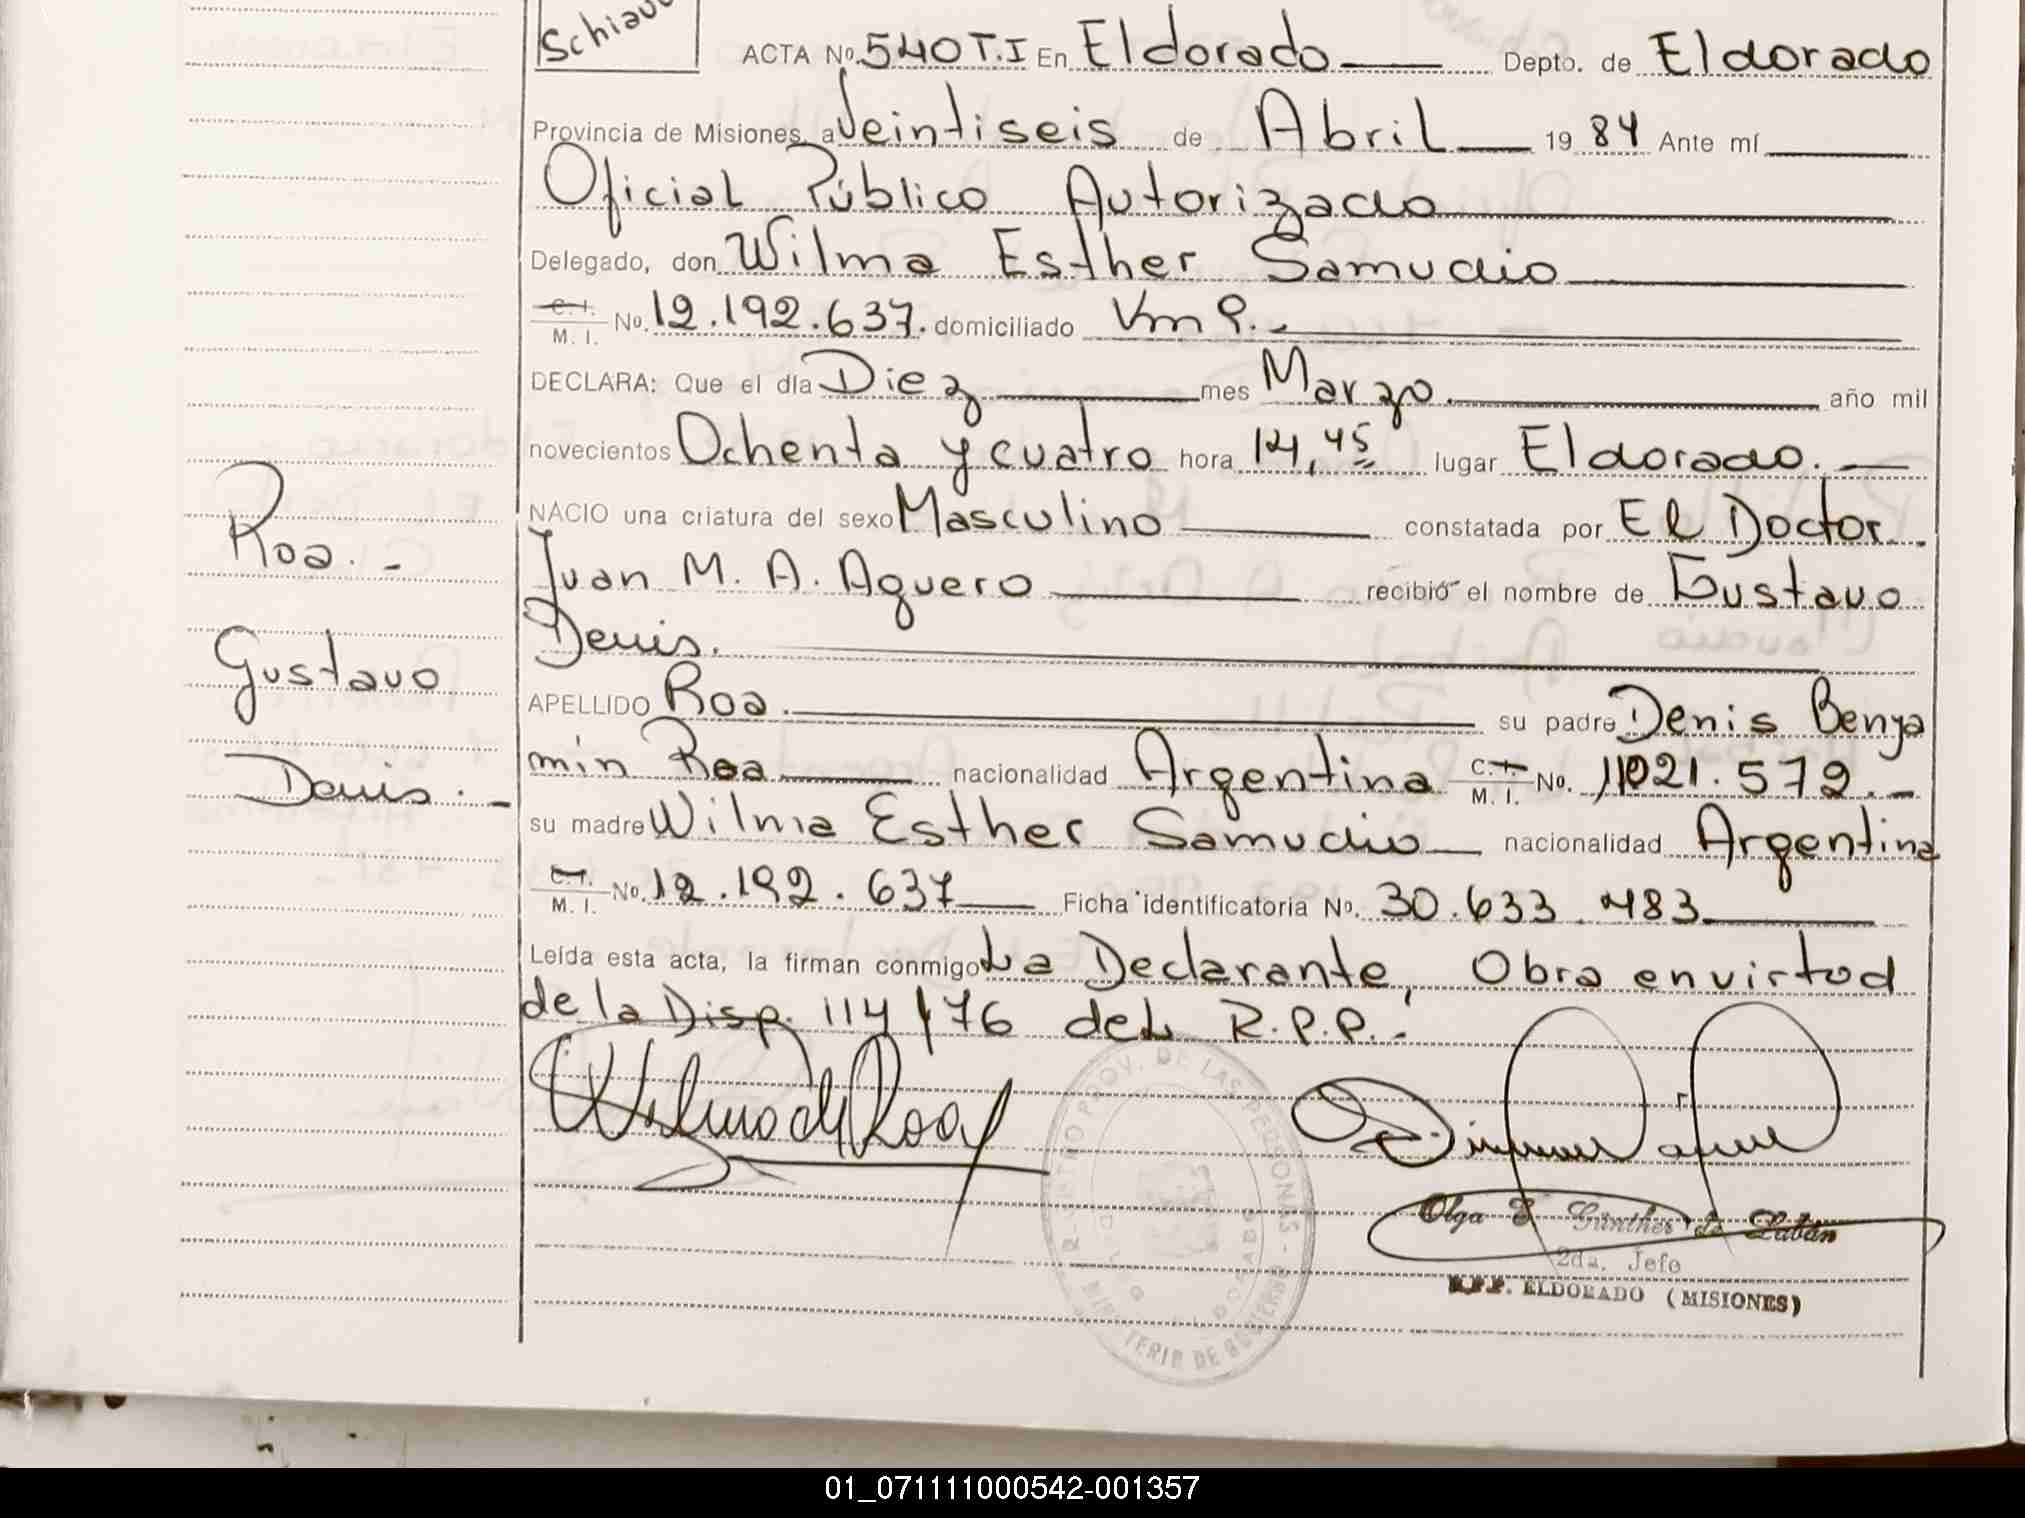 Schiavo
ACTA No. 540 T.I En Eldorado Depto. de Eldorado
Provincia de Misiones, a Veintiseis de Abril 19 84 Ante mí
Oficial Público Autorizado
Delegado, don Wilma Esther Samudio
C.I. M. I. No. 12.192.637. domiciliado Km 9.-
DECLARA: Que el día Diez mes Marzo. año mil
novecientos Ochenta y cuatro hora 14,45 lugar Eldorado.
NACIO una criatura del sexo Masculino constatada por El Doctor.
Juan M. A. Aguero recibió el nombre de Gustavo
Denis.
APELLIDO Roa. su padre Denis Benja
min Roa nacionalidad Argentina C.I. M. I. No. 11021.572.-
su madre Wilma Esther Samudio nacionalidad Argentina
C.I. M. I. No. 12.192.637 Ficha identificatoria No. 30.633.483
Leída esta acta, la firman conmigo La Declarante, Obra en virtud
de la Disp. 114/76 del R.P.P.-
Roa.-
Gustavo
Denis.-
Wilma de Roa
REGISTRO PROV. DE LAS PERSONAS - MINISTERIO DE GOBIERNO
ELDORADO
Olga E. Günther de Labán
2da. Jefe
R.P.P. ELDORADO (MISIONES)
01_071111000542-001357